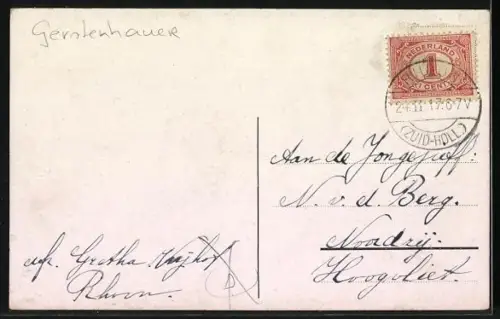 Gerstenhauer
NEDERLAND
1
CENT
24.11.17.6-7V
(ZUID-HOLL)
Aan de Jongejuff:
N. v. d. Berg.
Noordrij.
Hoogvliet.
afz. Gretha
Rhoon.
D